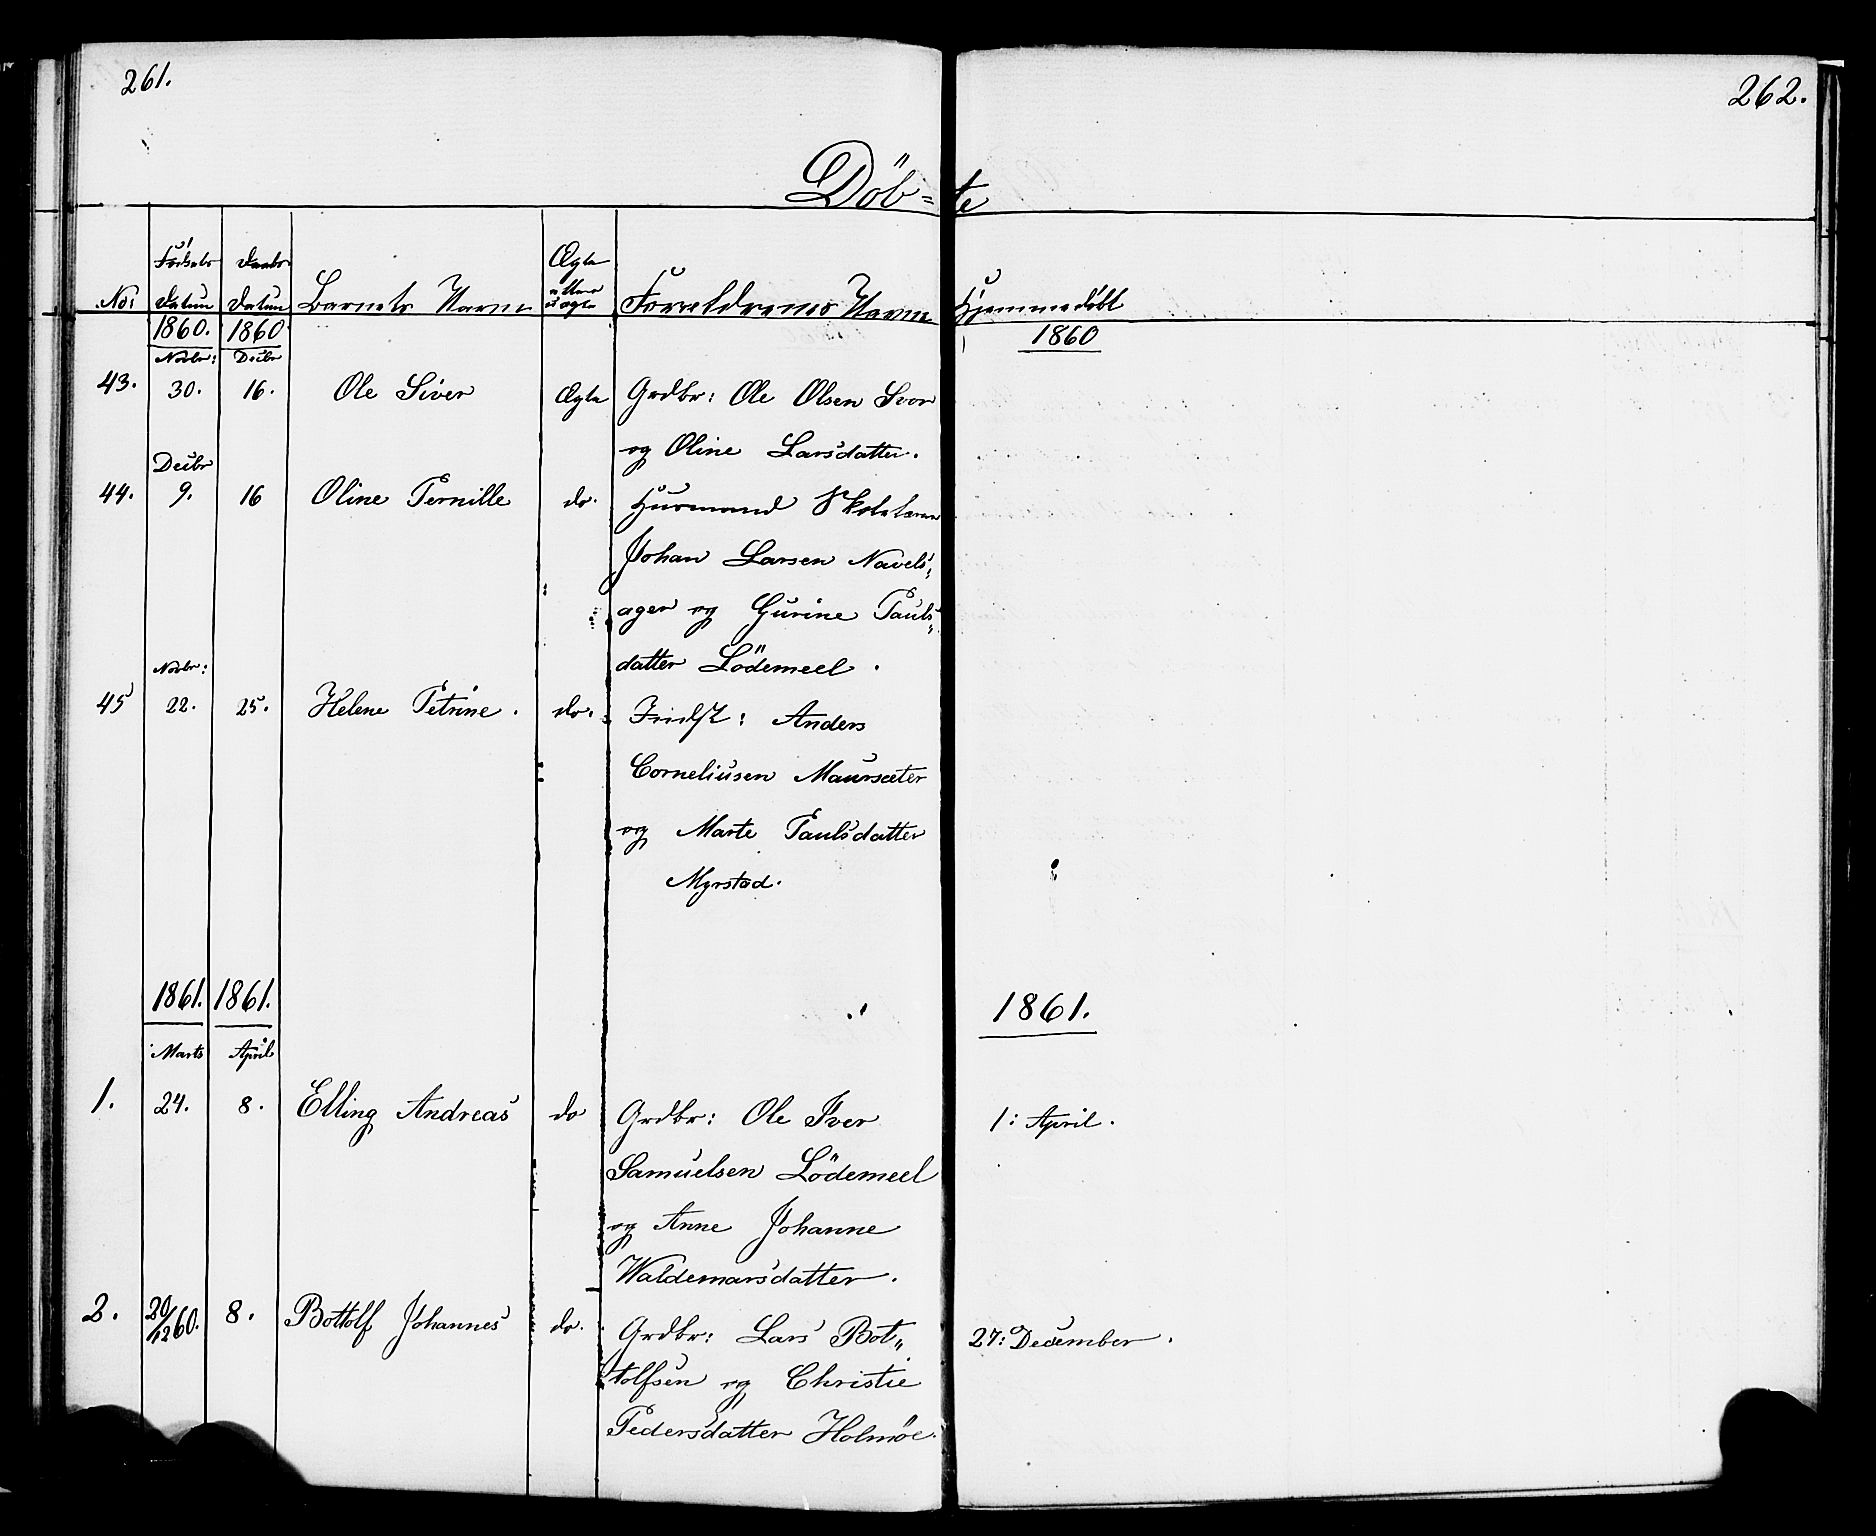 261.
262.
Döb=te
Fødsels Daabs Ægte
No: Datum Datum Barnets Navn eller uægte Forældrenes Navne Hjemmedöbt
1860. 1860 1860
Novbr: Decbr
43. 30. 16. Ole Siver Ægte Grdbr: Ole Olsen Svor
og Oline Larsdatter.
Decbr
44. 9. 16 Oline Pernille do. Huusmand Skolelærer
Johan Larsen Navels„
ager og Gurine Pauls„
datter Lödemeel.
Novbr:
45 22. 25. Helene Petrine. do. Indst: Anders
Corneliusen Maursæter
og Marte Paulsdatter
Myrstad.
1861. 1861. 1861.
Marts April
1. 24. 8. Elling Andreas do Grdbr: Ole Iver 1: April.
Samuelsen Lödemeel
og Anne Johanne
Waldemarsdatter.
2. 20/12 60. 8. Bottolf Johannes do. Grdbr: Lars Bot„ 27: December.
tolfsen og Christie
Pedersdatter Holmöe.